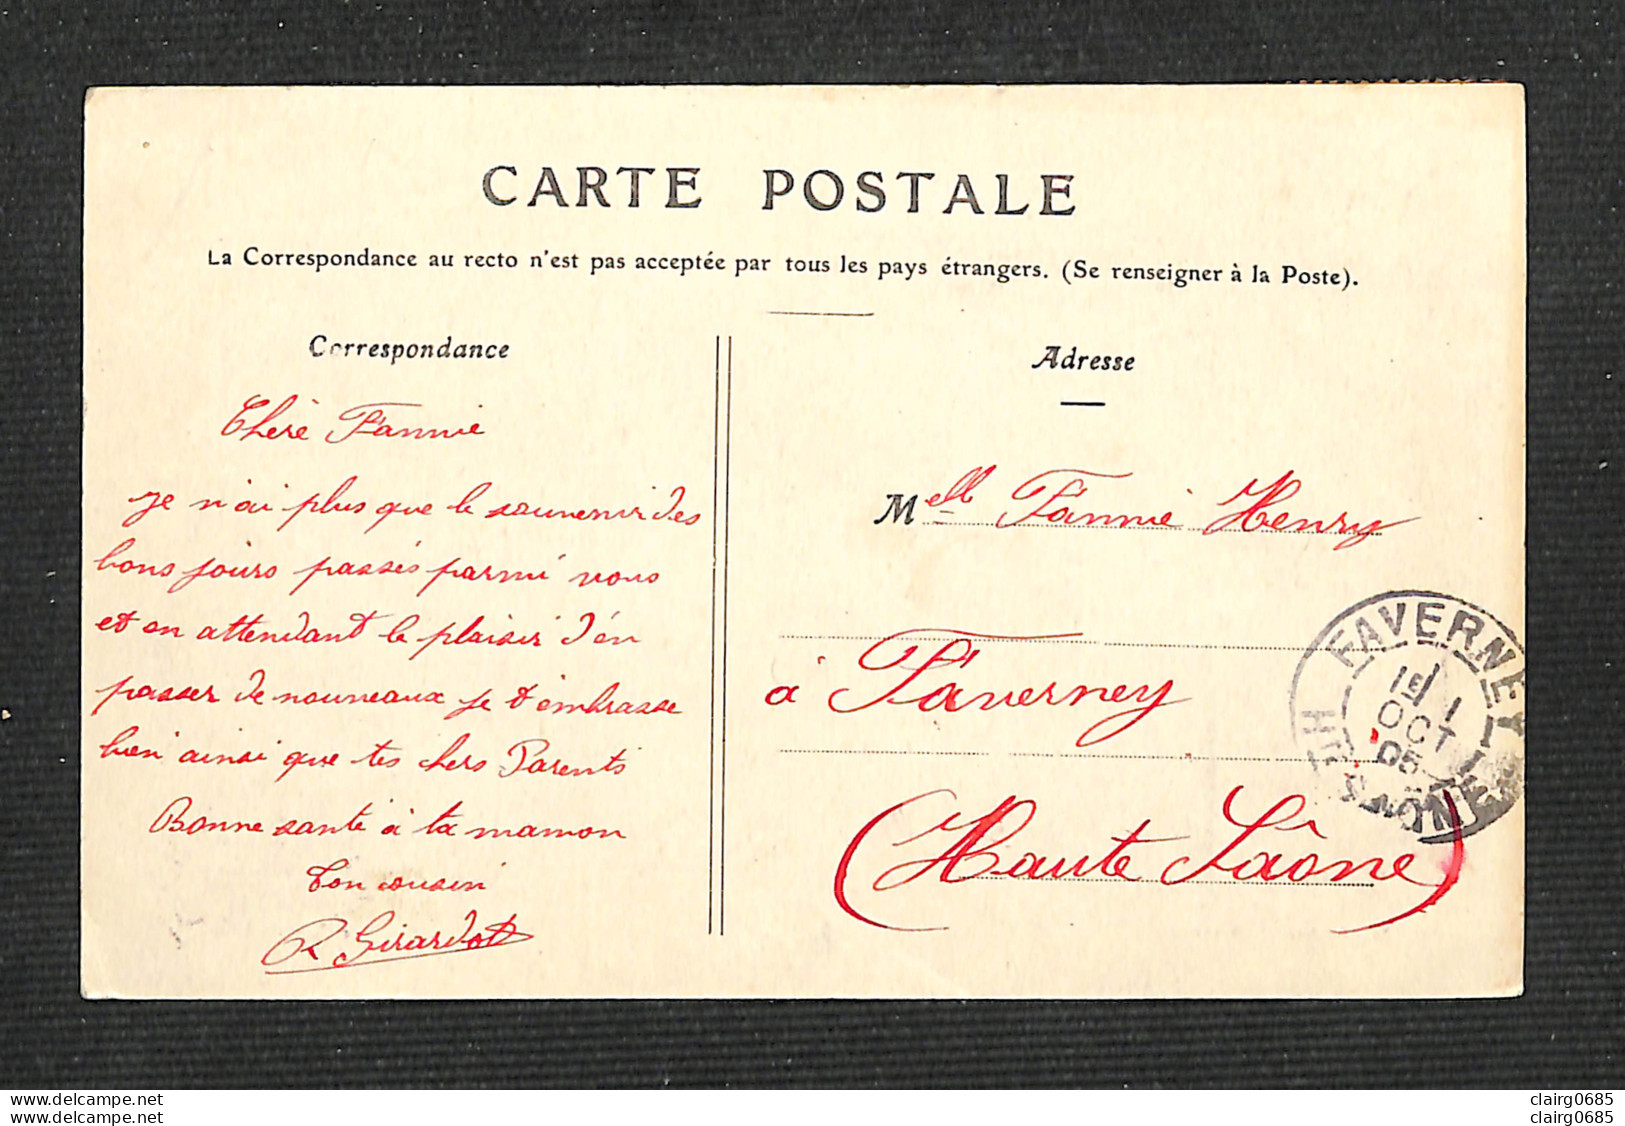 CARTE POSTALE
La Correspondance au recto n'est pas acceptée par tous les pays étrangers. (Se renseigner à la Poste).
Correspondance
Chère Fannie
je n'ai plus que le souvenir des
bons jours passés parmi vous
et en attendant le plaisir d'en
passer de nouveaux je t'embrasse
bien ainsi que tes chers Parents
Bonne santé à ta maman
Ton cousin
R Girardot
Adresse
Melle Fannie Henry
à Faverney
(Haute Saône)
FAVERNEY
1
OCT
05
HTE SAONE
delcampe.net
delcampe.net
clairg0685
clairg0685